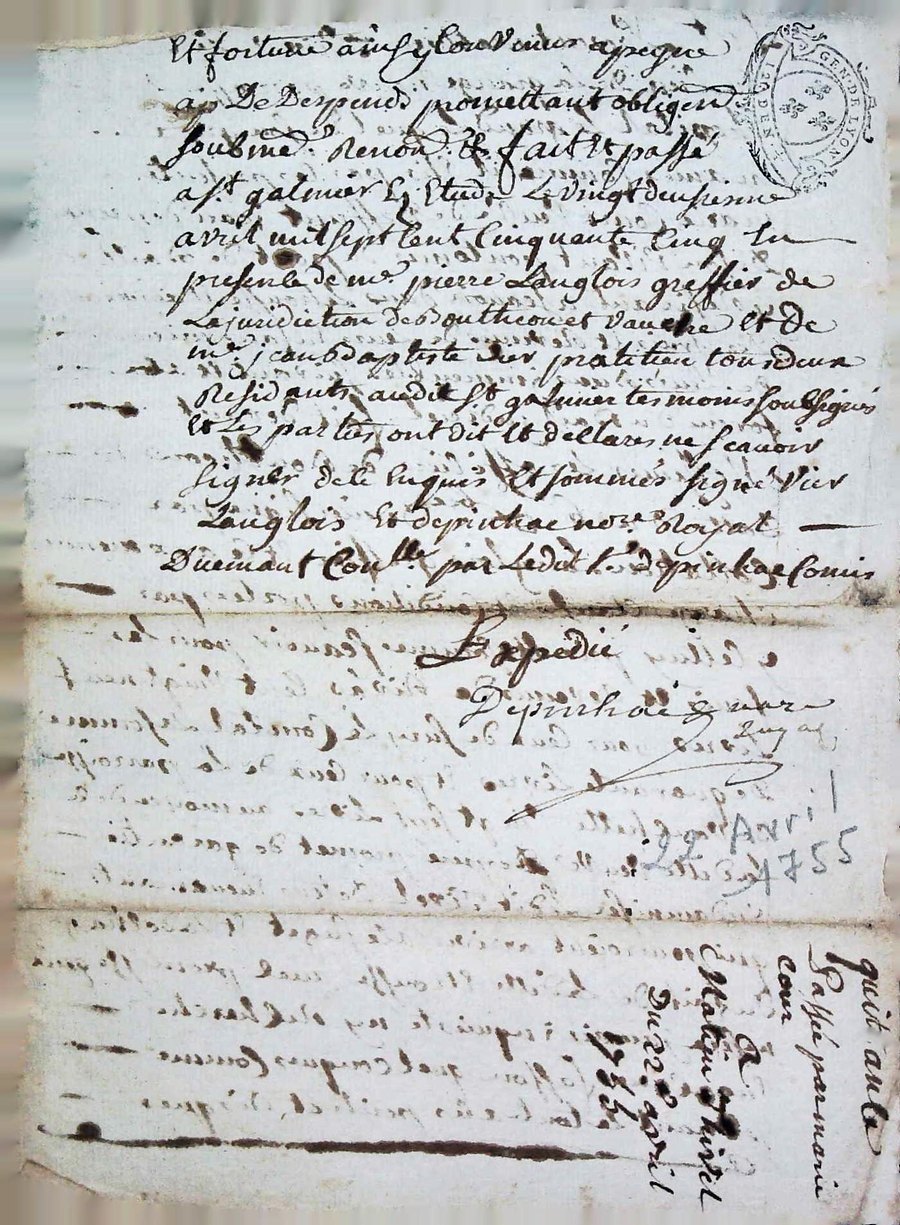 Et fortune ainsy Convenus a peyne
De Despends promettant obligent
Soubmet. Renon. & fait et passé
a St. galmier En Etude Le vingt deusieme
avril mil sept Cent Cinquante Cinq En
presence de me. pierre Langlois greffier de
La juridiction de Boutheon et Vauche Et de
me. jean Baptiste vier pratitien tous deux
Residants audit St galmier tesmoins soubsignés
Et Les parties ont dit Et declares ne scavoir
signer de ce Enquis Et sommés signé Vier
Langlois Et depinhac nore. Royal
Duemant Conlle. par Ledit Sr. depinhac Comis
Expedié
Depinhac nore
Royal
22 Avril
1755
quitance
Passée par marie
cour
a
Matieu Thivel
Du 22e avril
1755
GEN DE LYON